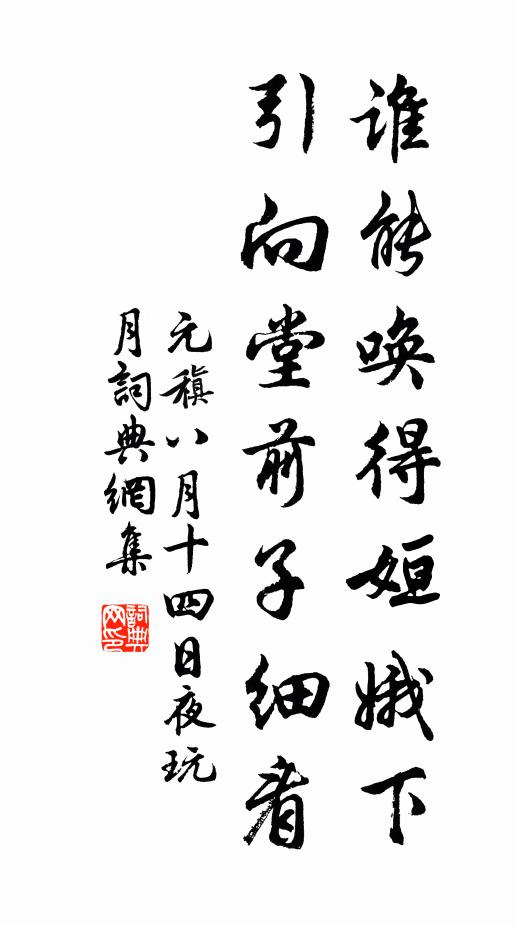 誰能喚得姮娥下
引向堂前子細看
元稹八月十四日夜玩
月詞典網集
詞典
网印